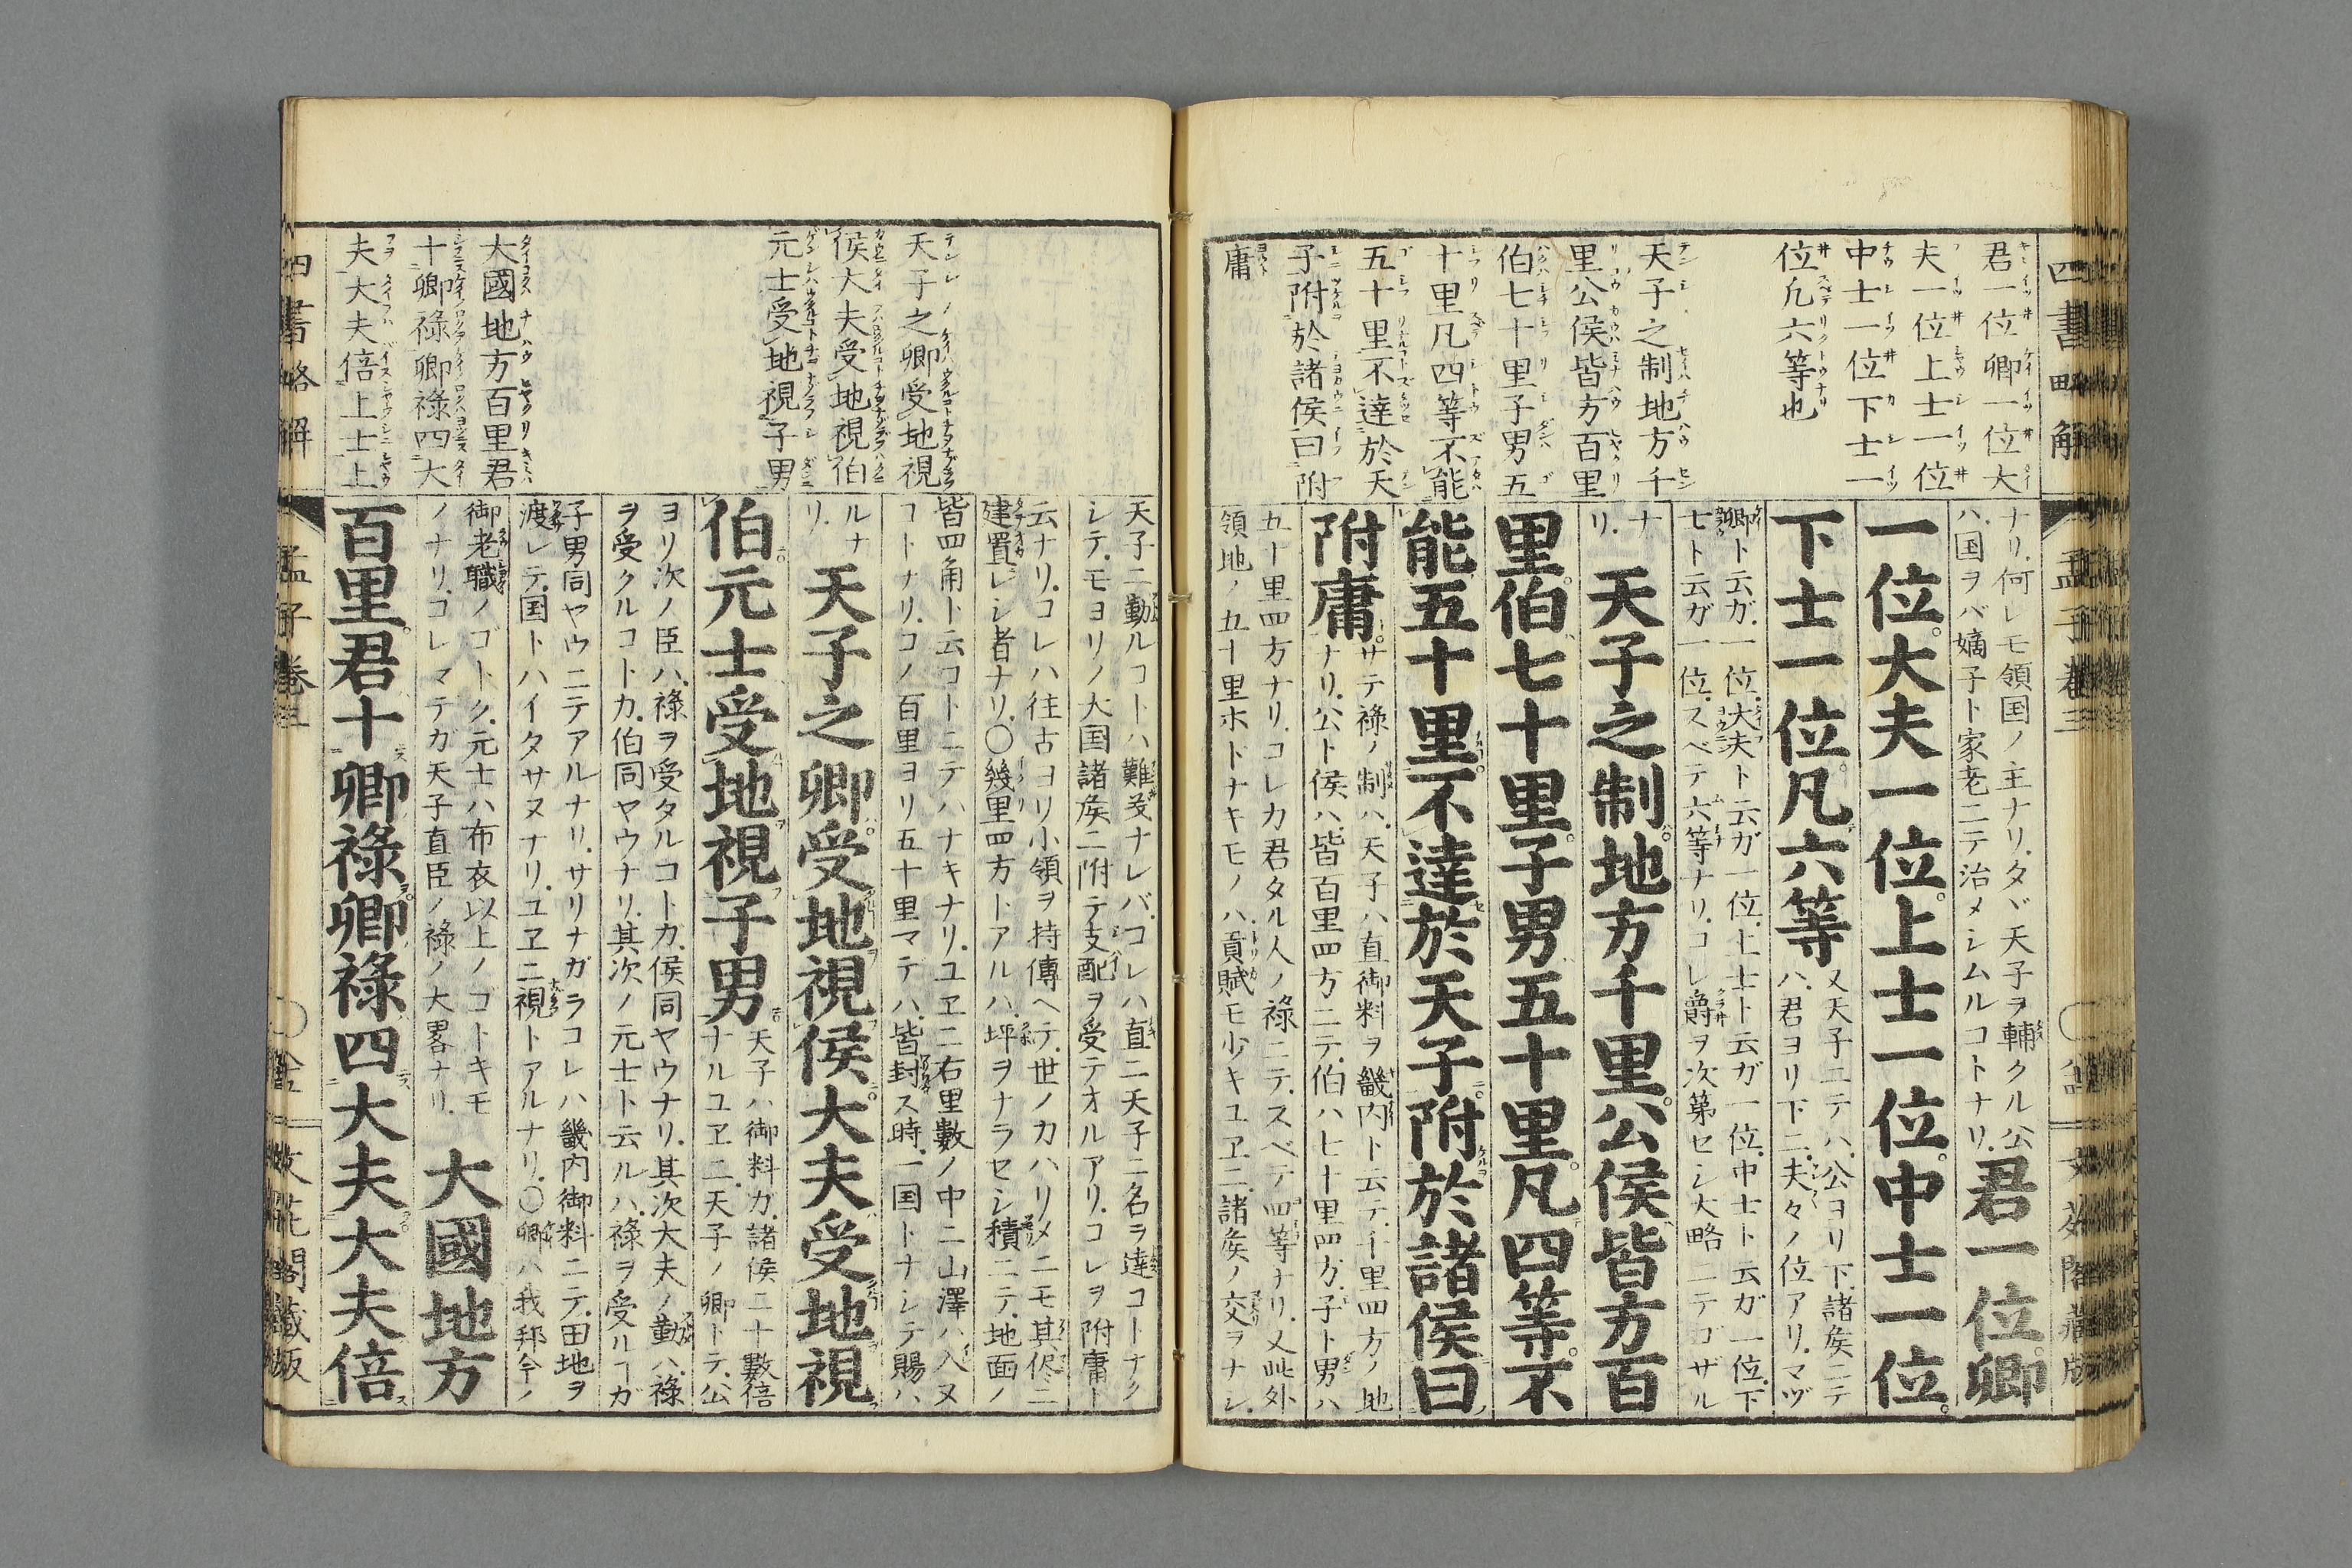 四書略解
孟子卷三
君一位卿一位大
夫一位上士一位
中士一位下士一
位凡六等也
天子之制地方千
里公侯皆方百里
伯七十里子男五
十里凡四等不能
五十里不達於天
子附於諸侯曰附
庸
ナリ何レモ領国ノ主ナリ タヾ天子ヲ輔クル公
ハ国ヲバ嫡子ト家老ニテ治メシムルコトナリ
君一位卿
一位大夫一位上士一位中士一位
下士一位凡六等
又天子ニテハ公ヨリ下諸矦ニテ
ハ君ヨリ下ニ夫々ノ位アリマヅ
卿ト云ガ一位大夫ト云ガ一位上士ト云ガ一位中士ト云ガ一位下
士ト云ガ一位スベテ六等ナリコレ爵ヲ次第セシ大略ニテゴザル
ナ
リ
天子之制地方千里公侯皆方百
里伯七十里子男五十里凡四等不
能五十里不達於天子附於諸侯曰
附庸
サテ祿ノ制ハ天子ハ直御料ヲ畿内ト云テ千里四方ノ地
ナリ公ト侯ハ皆百里四方ニテ伯ハ七十里四方子ト男ハ
五十里四方ナリコレカ君タル人ノ祿ニテスベテ四等ナリ又此外
領地ノ五十里ホドナキモノハ貢賦モ少キユヱニ諸矦ノ交ヲナシ
天子之卿受地視
侯大夫受地視伯
元士受地視子男
大國地方百里君
十卿祿卿祿四大
夫大夫倍上士上
天子ニ動ルコトハ難義ナレバコレハ直ニ天子ニ名ヲ達コトナク
シテモヨリノ大国諸矦ニ附テ支配ヲ受テオルアリコレヲ附庸ト
云ナリコレハ往古ヨリ小領ヲ持傳ヘテ世ノカハリメニモ其侭ニ
建置レシ者ナリ〇幾里四方トアルハ坪ヲナラセシ積ニテ地面ノ
皆四角ト云コトニテハナキナリユヱニ右里數ノ中ニ山澤ハ入ヌ
コトナリコノ百里ヨリ五十里マテハ皆封ス時一国トナシテ賜ハ
ルナ
リ
天子之卿受地視侯大夫受地視
伯元士受地視子男
天子ハ御料カ諸侯ニ十數倍
ナルユヱニ天子ノ卿トテ公
ヨリ次ノ臣ハ祿ヲ受タルコトカ侯同ヤウナリ其次大夫ノ勤ハ祿
ヲ受クルコトカ伯同ヤウナリ其次ノ元士ト云ルハ祿ヲ受ルヿガ
子男同ヤウニテアルナリサリナガラコレハ畿内御料ニテ田地ヲ
渡レテ国トハイタサヌナリユヱニ視トアルナリ〇卿ハ我邦今ノ
御老職ノゴトク元士ハ布衣以上ノゴトキモ
ノナリコレマテガ天子直臣ノ祿ノ大畧ナリ
大國地方
百里君十卿祿卿祿四大夫大夫倍
四書略解
孟子卷三